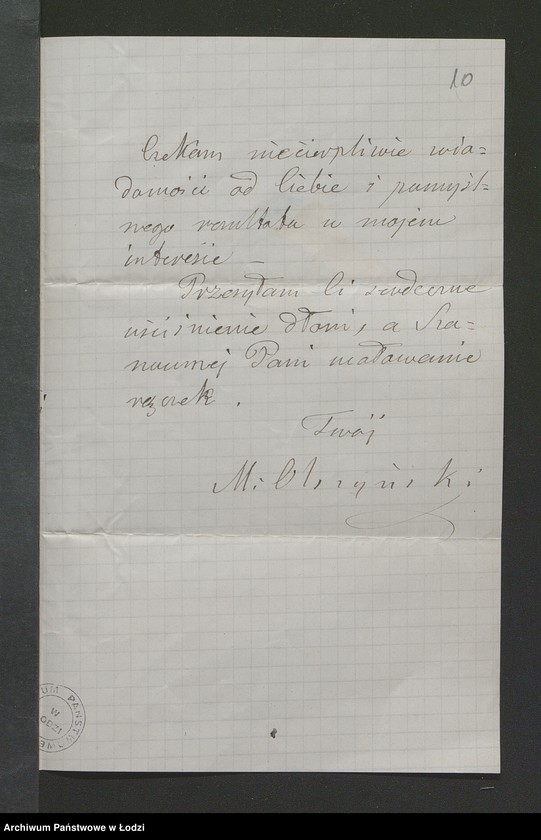 10
Czekam niecierpliwie wia-
domości od Ciebie i pomyśl-
nego rezultatu w mojem
interesie —
Przesyłam Ci serdeczne
uściśnienie dłoni, a Sza-
nownej Pani ucałowanie
rączek.
Twój
M. Olszyński
UM PAŃSTWOWE
W
ŁODZI
Archiwum Państwowe w Łodzi